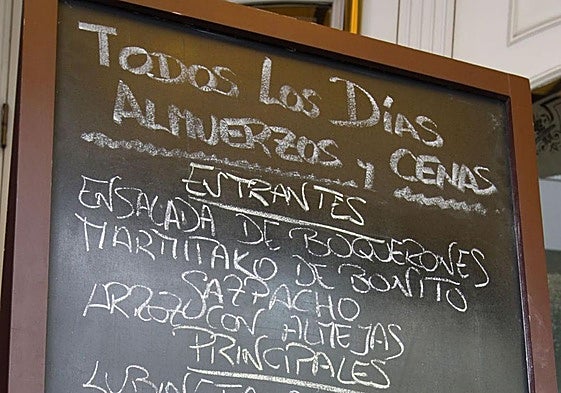 Todos Los Días
ALMUERZOS y CENAS
ENTRANTES
ENSALADA DE BOQUERONES
MARMITAKO DE BONITO
SAZPACHO
ARROZ CON ALMEJAS
PRINCIPALES